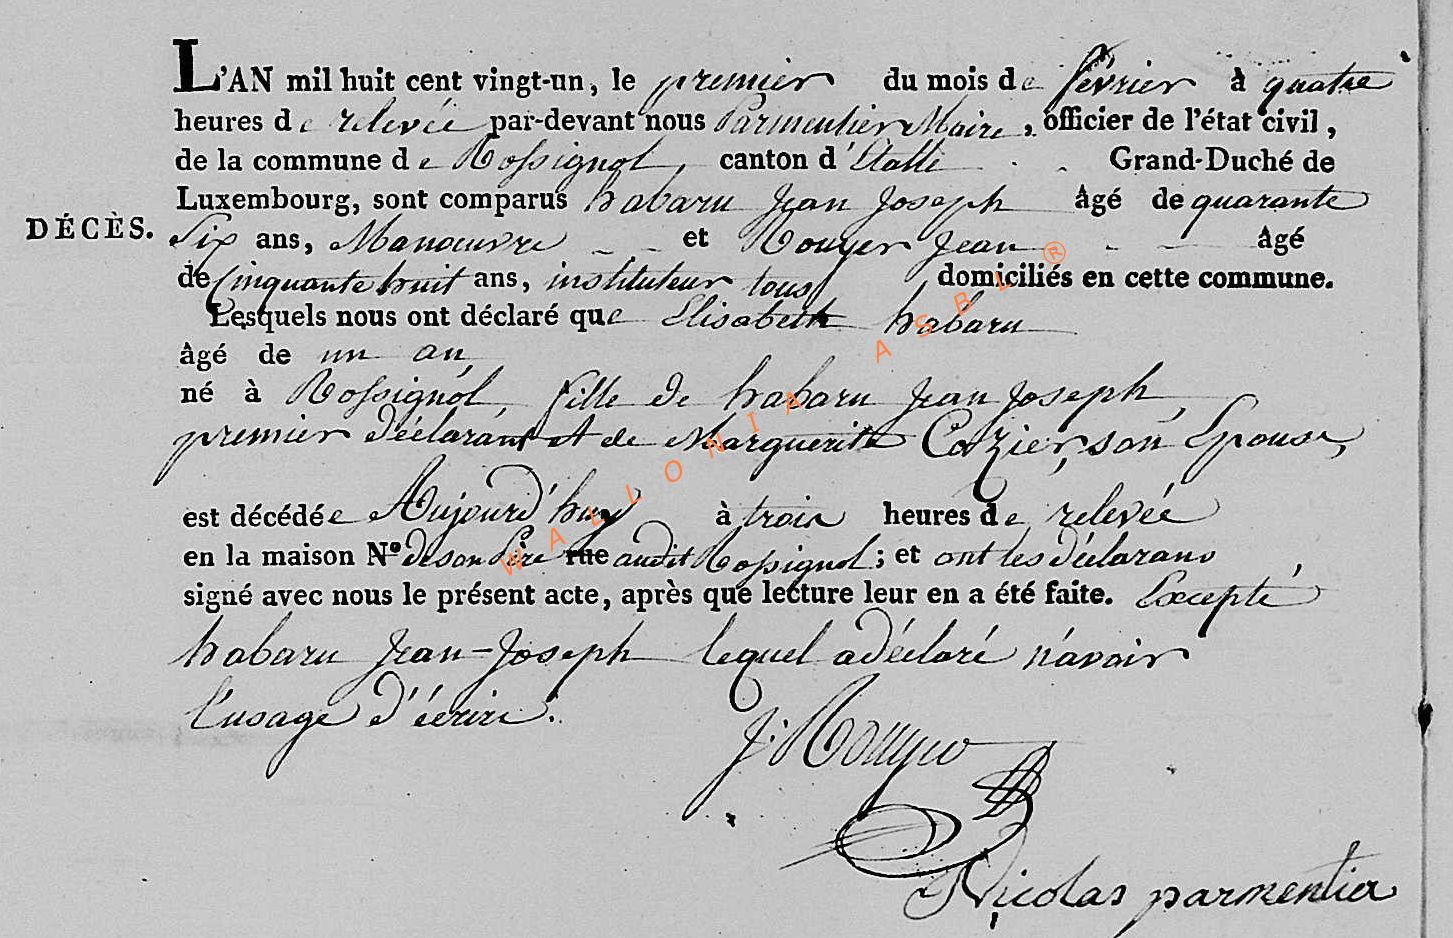 L'AN mil huit cent vingt-un, le premier du mois de février à quatre
heures de relevée par-devant nous Parmentier Maire, officier de l'état civil,
de la commune de Rossignol, canton d'Etalle Grand-Duché de
Luxembourg, sont comparus habaru Jean Joseph âgé de quarante
DÉCÈS. Six ans, Manœuvre et Rouyer Jean âgé
de Cinquante huit ans, instituteur tous domiciliés en cette commune.
Lesquels nous ont déclaré que Elisabeth habaru
âgé de un an,
né à Rossignol, fille de habaru Jean Joseph,
premier déclarant et de Marguerite Cozier, son Epouse,
est décédée Aujourd'huy à trois heures de relevée
en la maison Nº de son Père rue audit Rossignol; et ont les déclarans
signé avec nous le présent acte, après que lecture leur en a été faite. Excepté
habaru Jean-Joseph lequel a déclaré n'avoir
l'usage d'écrire.
J: Rouyer
Nicolas parmentier
WALLONIA ASBL ®